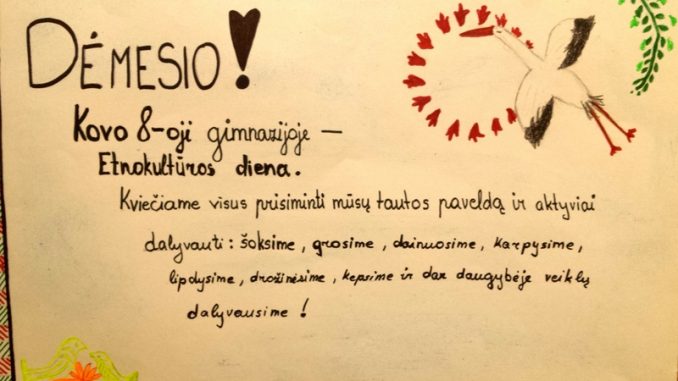 DĖMESIO!
Kovo 8-oji gimnazijoje –
Etnokultūros diena.
Kviečiame visus prisiminti mūsų tautos paveldą ir aktyviai
dalyvauti: šoksime, grosime, dainuosime, karpysime,
lipdysime, drožinėsime, kepsime ir dar daugybėje veiklų
dalyvausime!